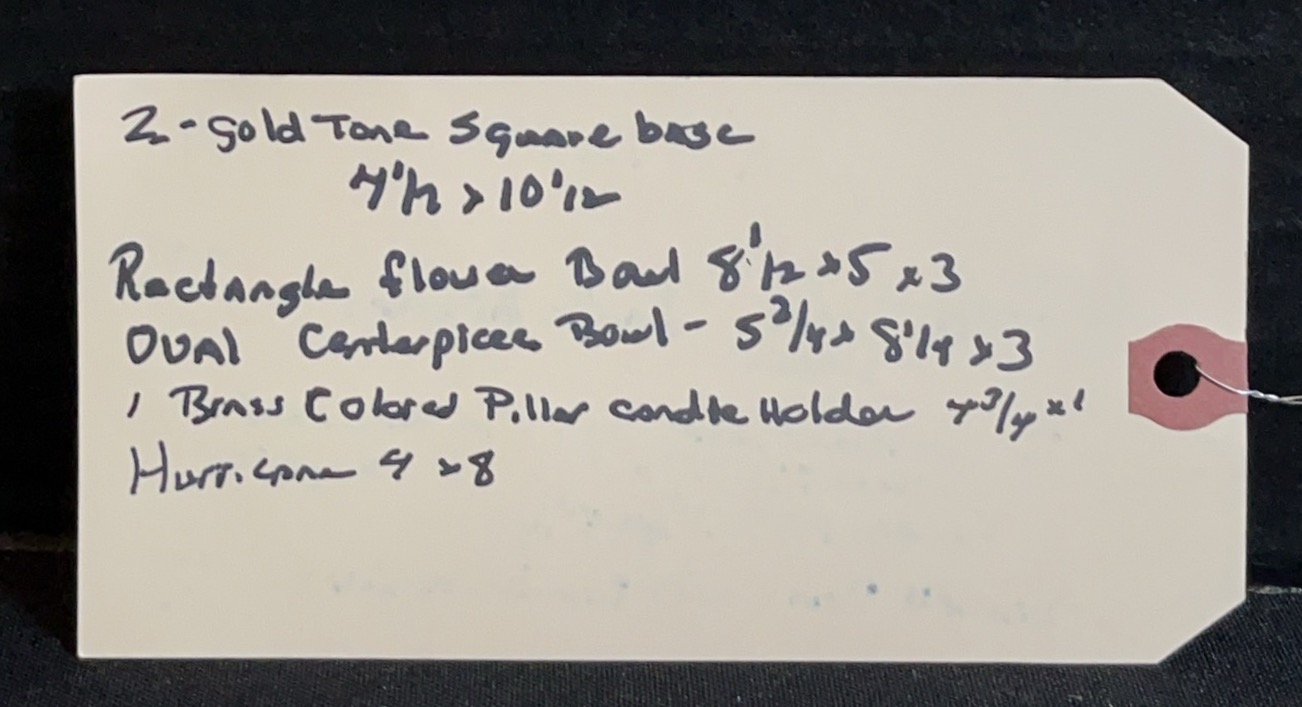 2 - gold Tone Square base
4 1/2 x 10 1/2
Rectangle flower Bowl 8 1/2 x 5 x 3
Oval Centerpiece Bowl - 5 3/4 x 8 1/4 x 3
1 Brass Colored Pillar candle Holder 4 3/4 x 1
Hurricane 4 x 8